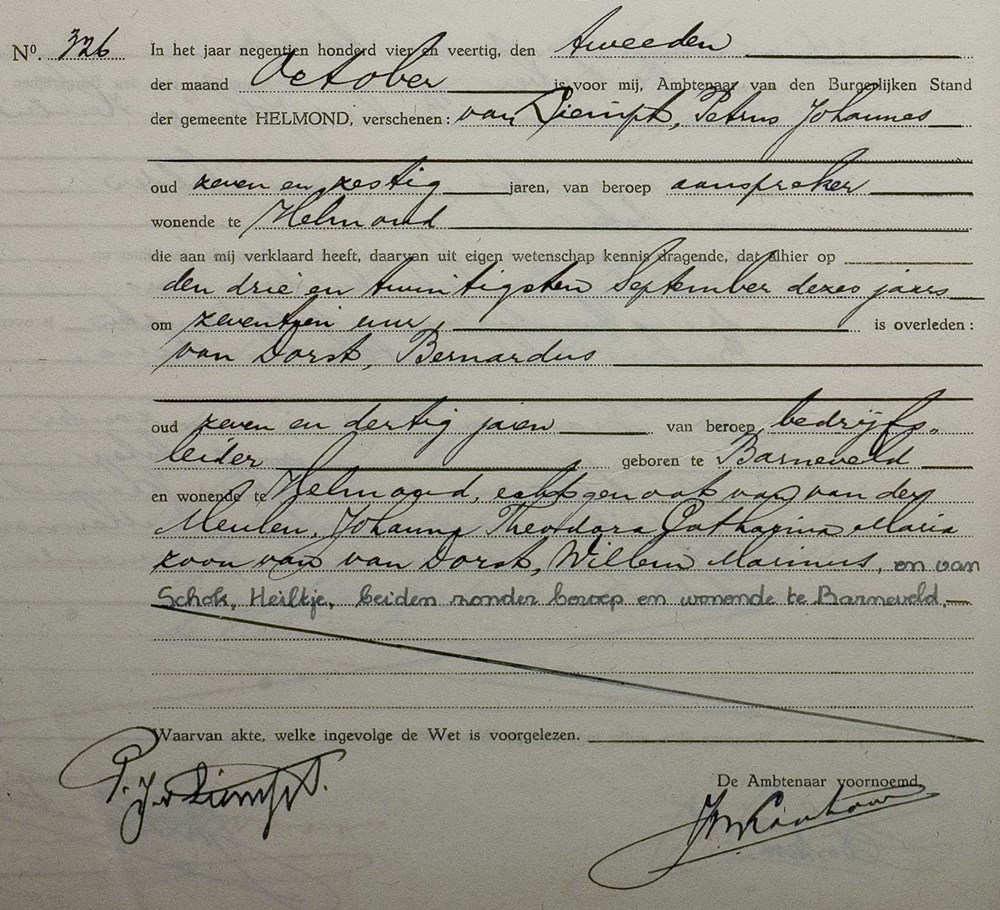 Nº. 326 In het jaar negentien honderd vier en veertig, den tweeden
der maand October is voor mij, Ambtenaar van den Burgerlijken Stand
der gemeente HELMOND, verschenen: van Diempt, Petrus Johannes
oud zeven en zestig jaren, van beroep aanspreker
wonende te Helmond
die aan mij verklaard heeft, daarvan uit eigen wetenschap kennis dragende, dat alhier op
den drie en twintigsten September dezes jaars
om zeventien uur, is overleden:
van Dorst, Bernardus
oud zeven en dertig jaren van beroep bedrijfs-
leider geboren te Barneveld
en wonende te Helmond, echtgenoot van van der
Meulen, Johanna Theodora Catharina Maria
zoon van van Dorst, Willem Marinus, en van
Schok, Heiltje, beiden zonder beroep en wonende te Barneveld.
Waarvan akte, welke ingevolge de Wet is voorgelezen.
De Ambtenaar voornoemd,
P. J. v Diempt.